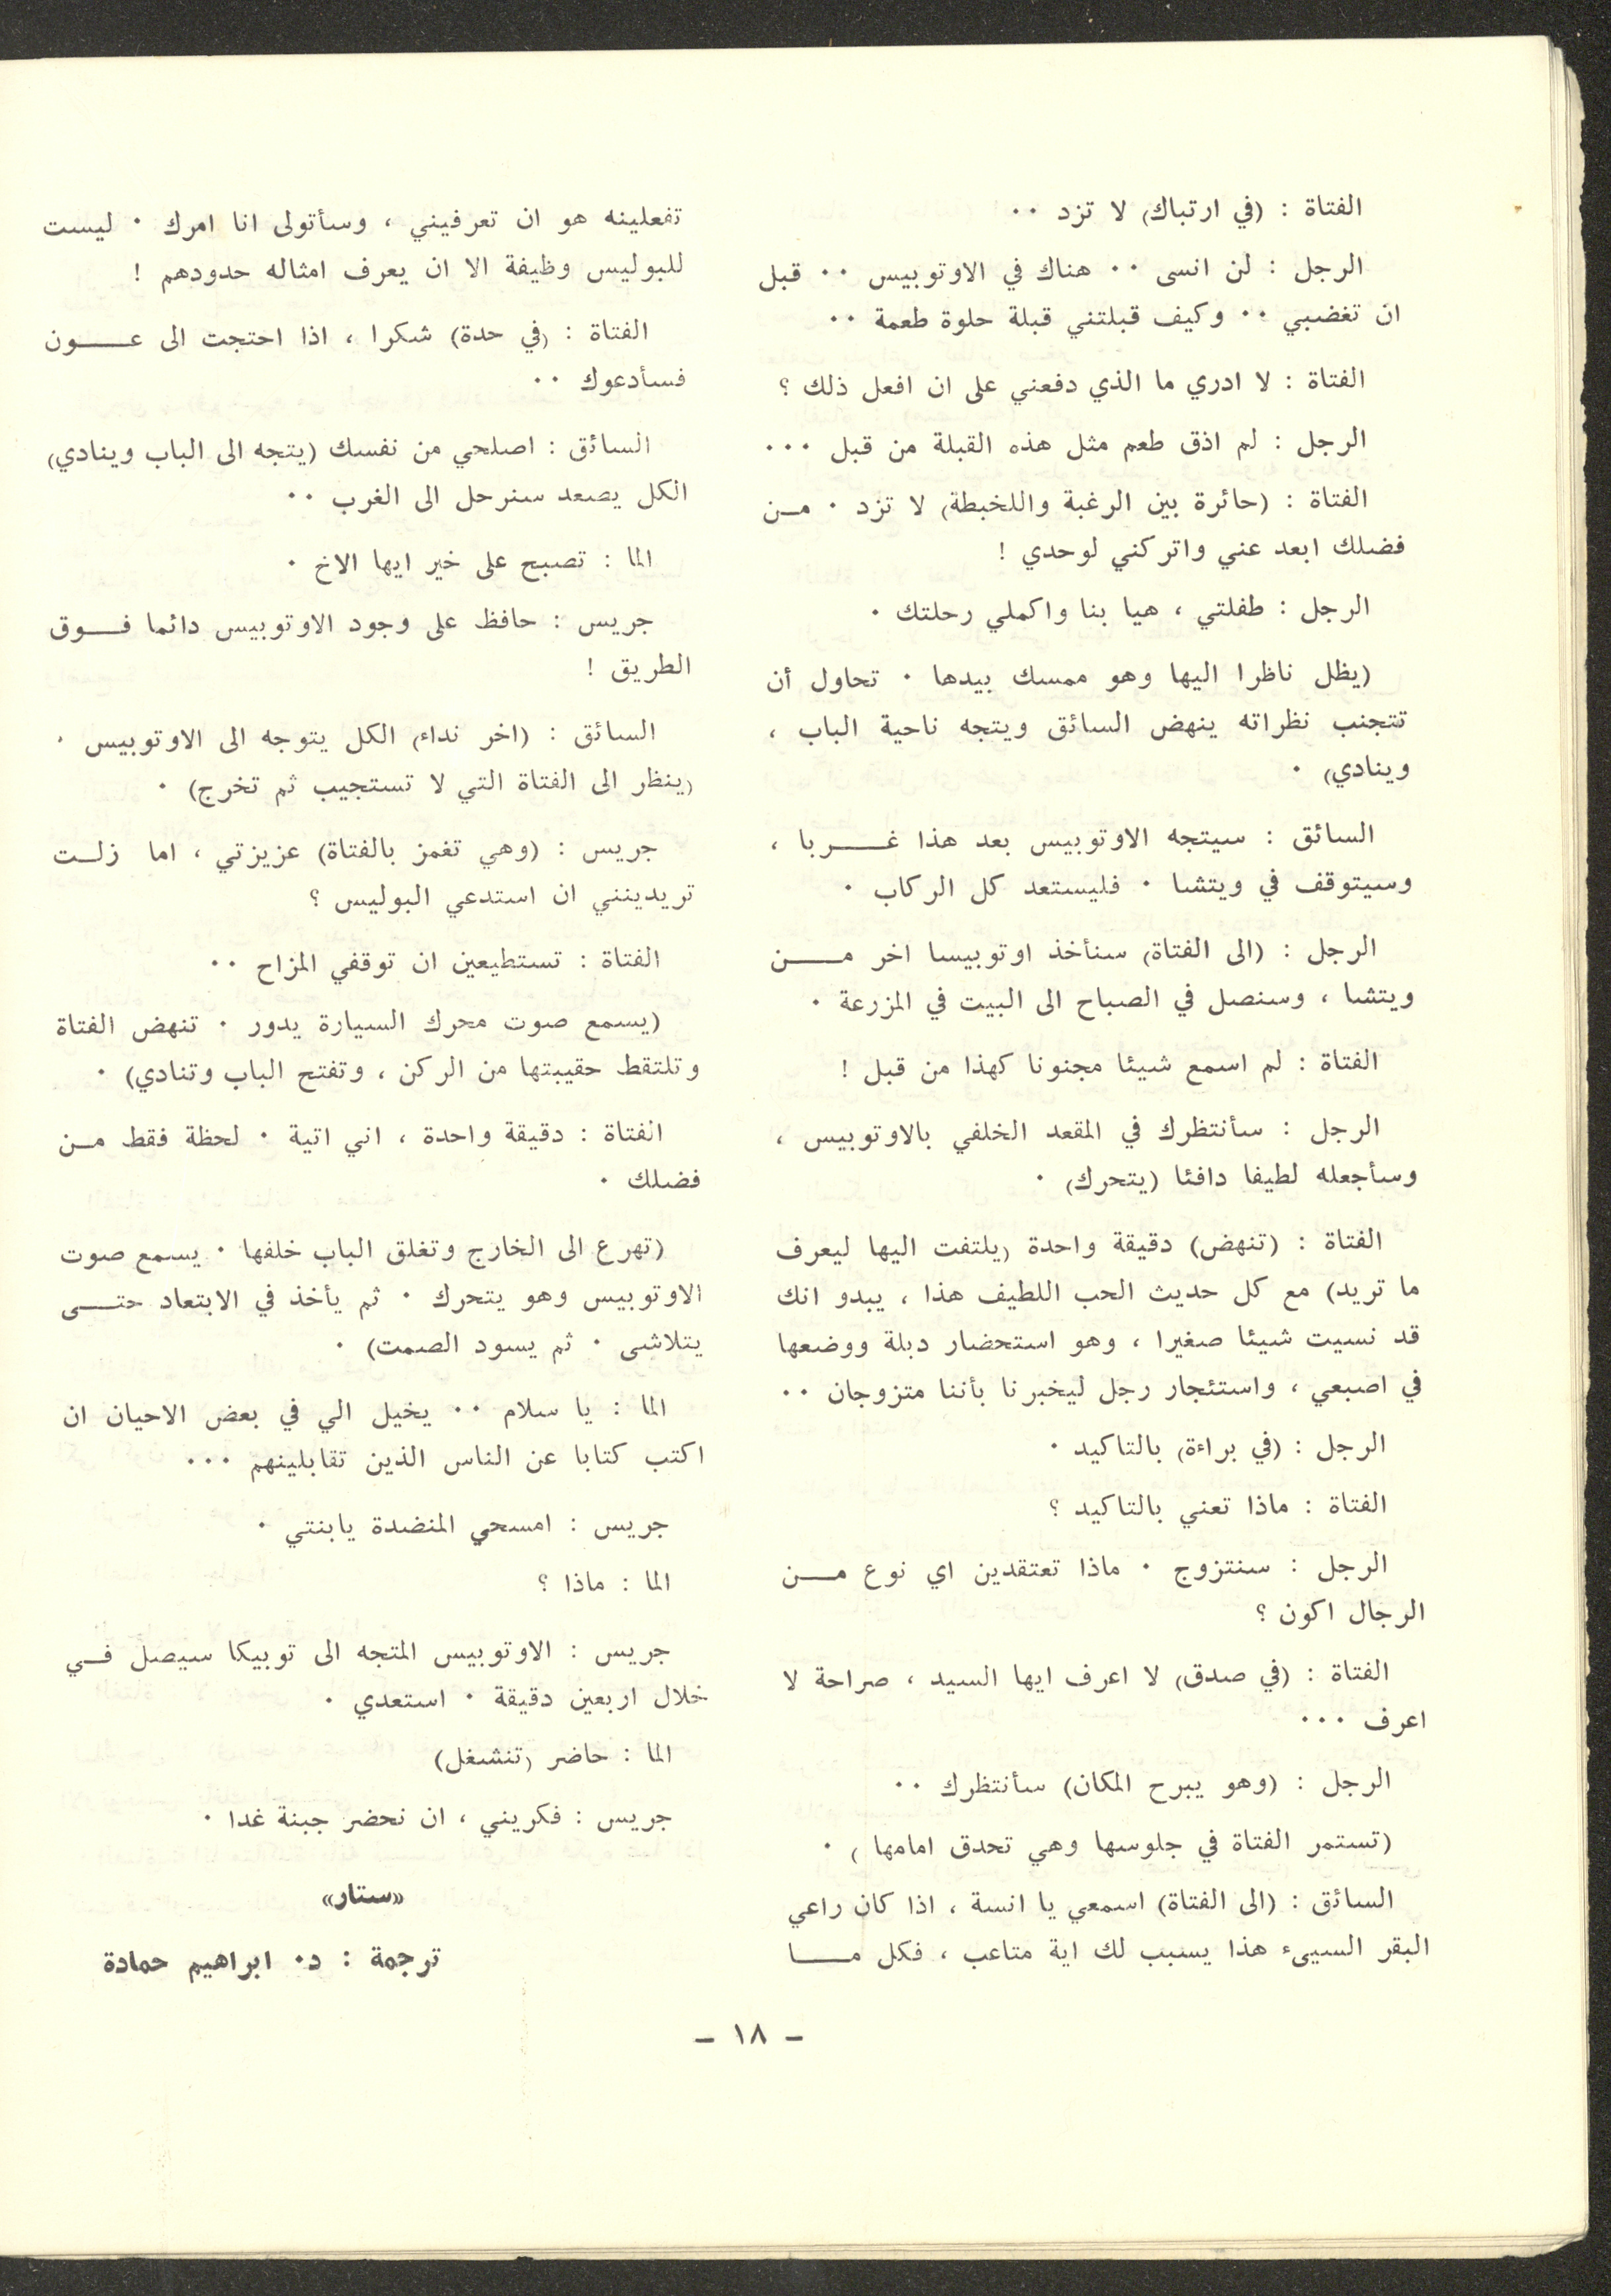 الفتاة : (في ارتباك) لا تزد ٠٠
الرجل : لن انسى ٠٠ هناك في الاوتوبيس ٠٠ قبل
ان تغضبي ٠٠ وكيف قبلتني قبلة حلوة طعمة ٠٠
الفتاة : لا ادري ما الذي دفعني على ان افعل ذلك ؟
الرجل : لم اذق طعم مثل هذه القبلة من قبل ٠٠٠
الفتاة : (حائرة بين الرغبة واللخبطة) لا تزد ٠ من
فضلك ابعد عني واتركني لوحدي !
الرجل : طفلتي ، هيا بنا واكملي رحلتك ٠
(يظل ناظرا اليها وهو ممسك بيدها ٠ تحاول أن
تتجنب نظراته ينهض السائق ويتجه ناحية الباب ،
وينادي) ٠
السائق : سيتجه الاوتوبيس بعد هذا غربا ،
وسيتوقف في ويتشا ٠ فليستعد كل الركاب ٠
الرجل : (الى الفتاة) سنأخذ اوتوبيسا اخر من
ويتشا ، وسنصل في الصباح الى البيت في المزرعة ٠
الفتاة : لم اسمع شيئا مجنونا كهذا من قبل !
الرجل : سأنتظرك في المقعد الخلفي بالاوتوبيس ،
وسأجعله لطيفا دافئا (يتحرك) ٠
الفتاة : (تنهض) دقيقة واحدة (يلتفت اليها ليعرف
ما تريد) مع كل حديث الحب اللطيف هذا ، يبدو انك
قد نسيت شيئا صغيرا ، وهو استحضار دبلة ووضعها
في اصبعي ، واستئجار رجل ليخبرنا بأننا متزوجان ٠٠
الرجل : (في براءة) بالتاكيد ٠
الفتاة : ماذا تعني بالتاكيد ؟
الرجل : سنتزوج ٠ ماذا تعتقدين اي نوع من
الرجال اكون ؟
الفتاة : (في صدق) لا اعرف ايها السيد ، صراحة لا
اعرف ٠٠٠
الرجل : (وهو يبرح المكان) سأنتظرك ٠٠
(تستمر الفتاة في جلوسها وهي تحدق امامها ) ٠
السائق : (الى الفتاة) اسمعي يا انسة ، اذا كان راعي
البقر السيىء هذا يسبب لك اية متاعب ، فكل ما
تفعلينه هو ان تعرفيني ، وسأتولى انا امرك ٠ ليست
للبوليس وظيفة الا ان يعرف امثاله حدودهم !
الفتاة : (في حدة) شكرا ، اذا احتجت الى عون
فسأدعوك ٠٠
السائق : اصلحي من نفسك (يتجه الى الباب وينادي)
الكل يصعد سنرحل الى الغرب ٠٠
الما : تصبح على خير ايها الاخ ٠
جريس : حافظ على وجود الاوتوبيس دائما فوق
الطريق !
السائق : (اخر نداء) الكل يتوجه الى الاوتوبيس ٠
(ينظر الى الفتاة التي لا تستجيب ثم تخرج) ٠
جريس : (وهي تغمز بالفتاة) عزيزتي ، اما زلت
تريدينني ان استدعي البوليس ؟
الفتاة : تستطيعين ان توقفي المزاح ٠٠
(يسمع صوت محرك السيارة يدور ٠ تنهض الفتاة
وتلتقط حقيبتها من الركن ، وتفتح الباب وتنادي) ٠
الفتاة : دقيقة واحدة ، اني اتية ٠ لحظة فقط من
فضلك ٠
(تهرع الى الخارج وتغلق الباب خلفها ٠ يسمع صوت
الاوتوبيس وهو يتحرك ٠ ثم يأخذ في الابتعاد حتى
يتلاشى ٠ ثم يسود الصمت) ٠
الما : يا سلام ٠٠ يخيل الي في بعض الاحيان ان
اكتب كتابا عن الناس الذين تقابلينهم ٠٠٠
جريس : امسحي المنضدة يابنتي ٠
الما : ماذا ؟
جريس : الاوتوبيس المتجه الى توبيكا سيصل في
خلال اربعين دقيقة ٠ استعدي ٠
الما : حاضر (تنشغل)
جريس : فكريني ، ان نحضر جبنة غدا ٠
«ستار»
ترجمة : د٠ ابراهيم حمادة
– ١٨ –